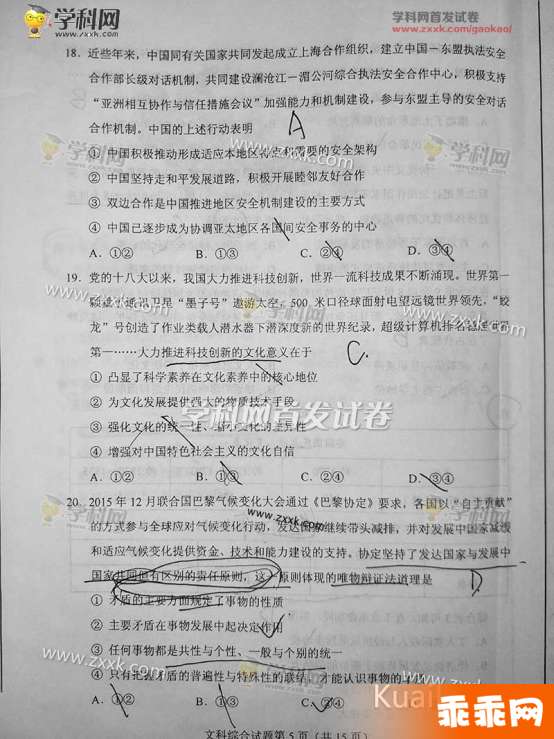 学科网
www.zxxk.com
学科网首发试卷
www.zxxk.com/gaokao/
18. 近些年来，中国同有关国家共同发起成立上海合作组织，建立中国－东盟执法安全
合作部长级对话机制，共同建设澜沧江－湄公河综合执法安全合作中心，积极支持
“亚洲相互协作与信任措施会议”加强能力和机制建设，参与东盟主导的安全对话
合作机制。中国的上述行动表明
A
① 中国积极推动形成适应本地区特点和需要的安全架构
② 中国坚持走和平发展道路，积极开展睦邻友好合作
③ 双边合作是中国推进地区安全机制建设的主要方式
④ 中国已逐步成为协调亚太地区各国间安全事务的中心
A. ①② B. ①③ C. ②④ D. ③④
19. 党的十八大以来，我国大力推进科技创新，世界一流科技成果不断涌现。世界第一
颗量子通讯卫星“墨子号”遨游太空，500 米口径球面射电望远镜世界领先，“蛟
龙”号创造了作业类载人潜水器下潜深度新的世界纪录，超级计算机排名稳居世界
第一……大力推进科技创新的文化意义在于
C.
① 凸显了科学素养在文化素养中的核心地位
② 为文化发展提供强大的物质技术手段
③ 强化文化的统一性、缩小文化的差异性
④ 增强对中国特色社会主义的文化自信
A. ①② B. ①③ C. ②④ D. ③④
学科网首发试卷
www.zxxk.com
20. 2015 年 12 月联合国巴黎气候变化大会通过《巴黎协定》要求，各国以“自主贡献”
的方式参与全球应对气候变化行动，发达国家继续带头减排，并对发展中国家减缓
和适应气候变化提供资金、技术和能力建设的支持。协定坚持了发达国家与发展中
国家共同但有区别的责任原则，这一原则体现的唯物辩证法道理是
D.
① 矛盾的主要方面规定了事物的性质
② 主要矛盾在事物发展中起决定作用
③ 任何事物都是共性与个性、一般与个别的统一
④ 只有把握矛盾的普遍性与特殊性的联结，才能认识事物的矛盾
A. ①② B. ①③ C. ②④
文科综合试题第 5 页（共 15 页）
乖乖网